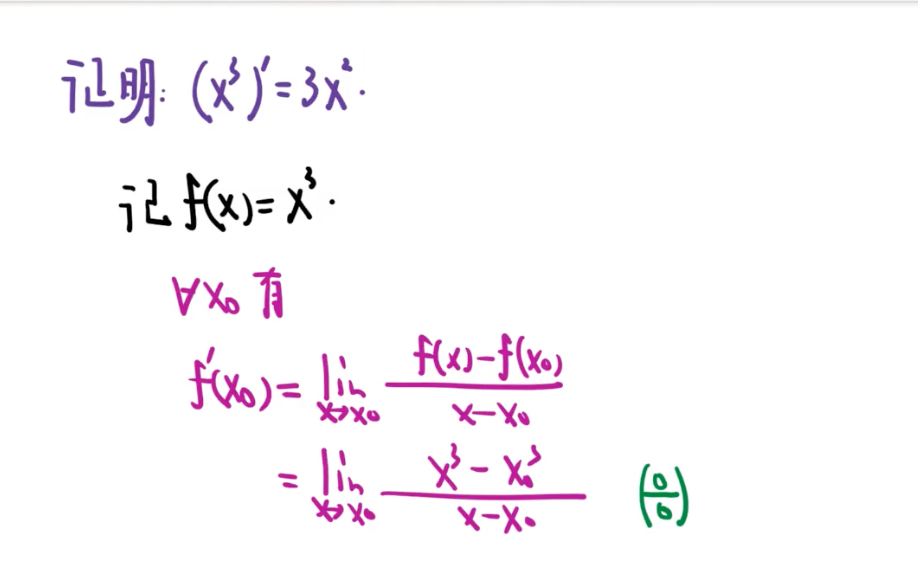 证明: (x³)′=3x².
记 f(x)=x³.
∀x₀ 有
f′(x₀)=lim_{x→x₀} (f(x)−f(x₀))/(x−x₀)
=lim_{x→x₀} (x³−x₀³)/(x−x₀) (0/0)